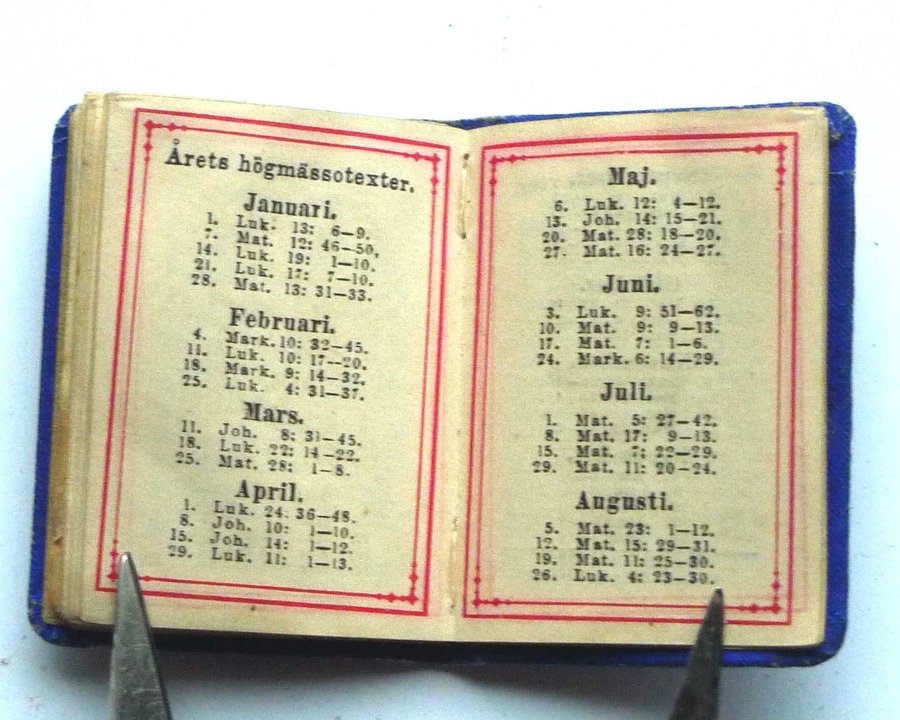 Årets högmässotexter.
Januari.
1. Luk. 13: 6—9.
7. Mat. 12: 46—50,
14. Luk. 19: 1—10.
21. Luk. 17: 7—10.
28. Mat. 13: 31—33.
Februari.
4. Mark. 10: 32—45.
11. Luk. 10: 17—20.
18. Mark. 9: 14—32.
25. Luk. 4: 31—37.
Mars.
11. Joh. 8: 31—45.
18. Luk. 22: 14—22.
25. Mat. 28: 1—8.
April.
1. Luk. 24: 36—48.
8. Joh. 10: 1—10.
15. Joh. 14: 1—12.
29. Luk. 11: 1—13.
Maj.
6. Luk. 12: 4—12.
13. Joh. 14: 15—21.
20. Mat. 28: 18—20.
27. Mat. 16: 24—27.
Juni.
3. Luk. 9: 51—62.
10. Mat. 9: 9—13.
17. Mat. 7: 1—6.
24. Mark. 6: 14—29.
Juli.
1. Mat. 5: 27—42.
8. Mat. 17: 9—13.
15. Mat. 7: 22—29.
29. Mat. 11: 20—24.
Augusti.
5. Mat. 23: 1—12.
12. Mat. 15: 29—31.
19. Mat. 11: 25—30.
26. Luk. 4: 23—30.